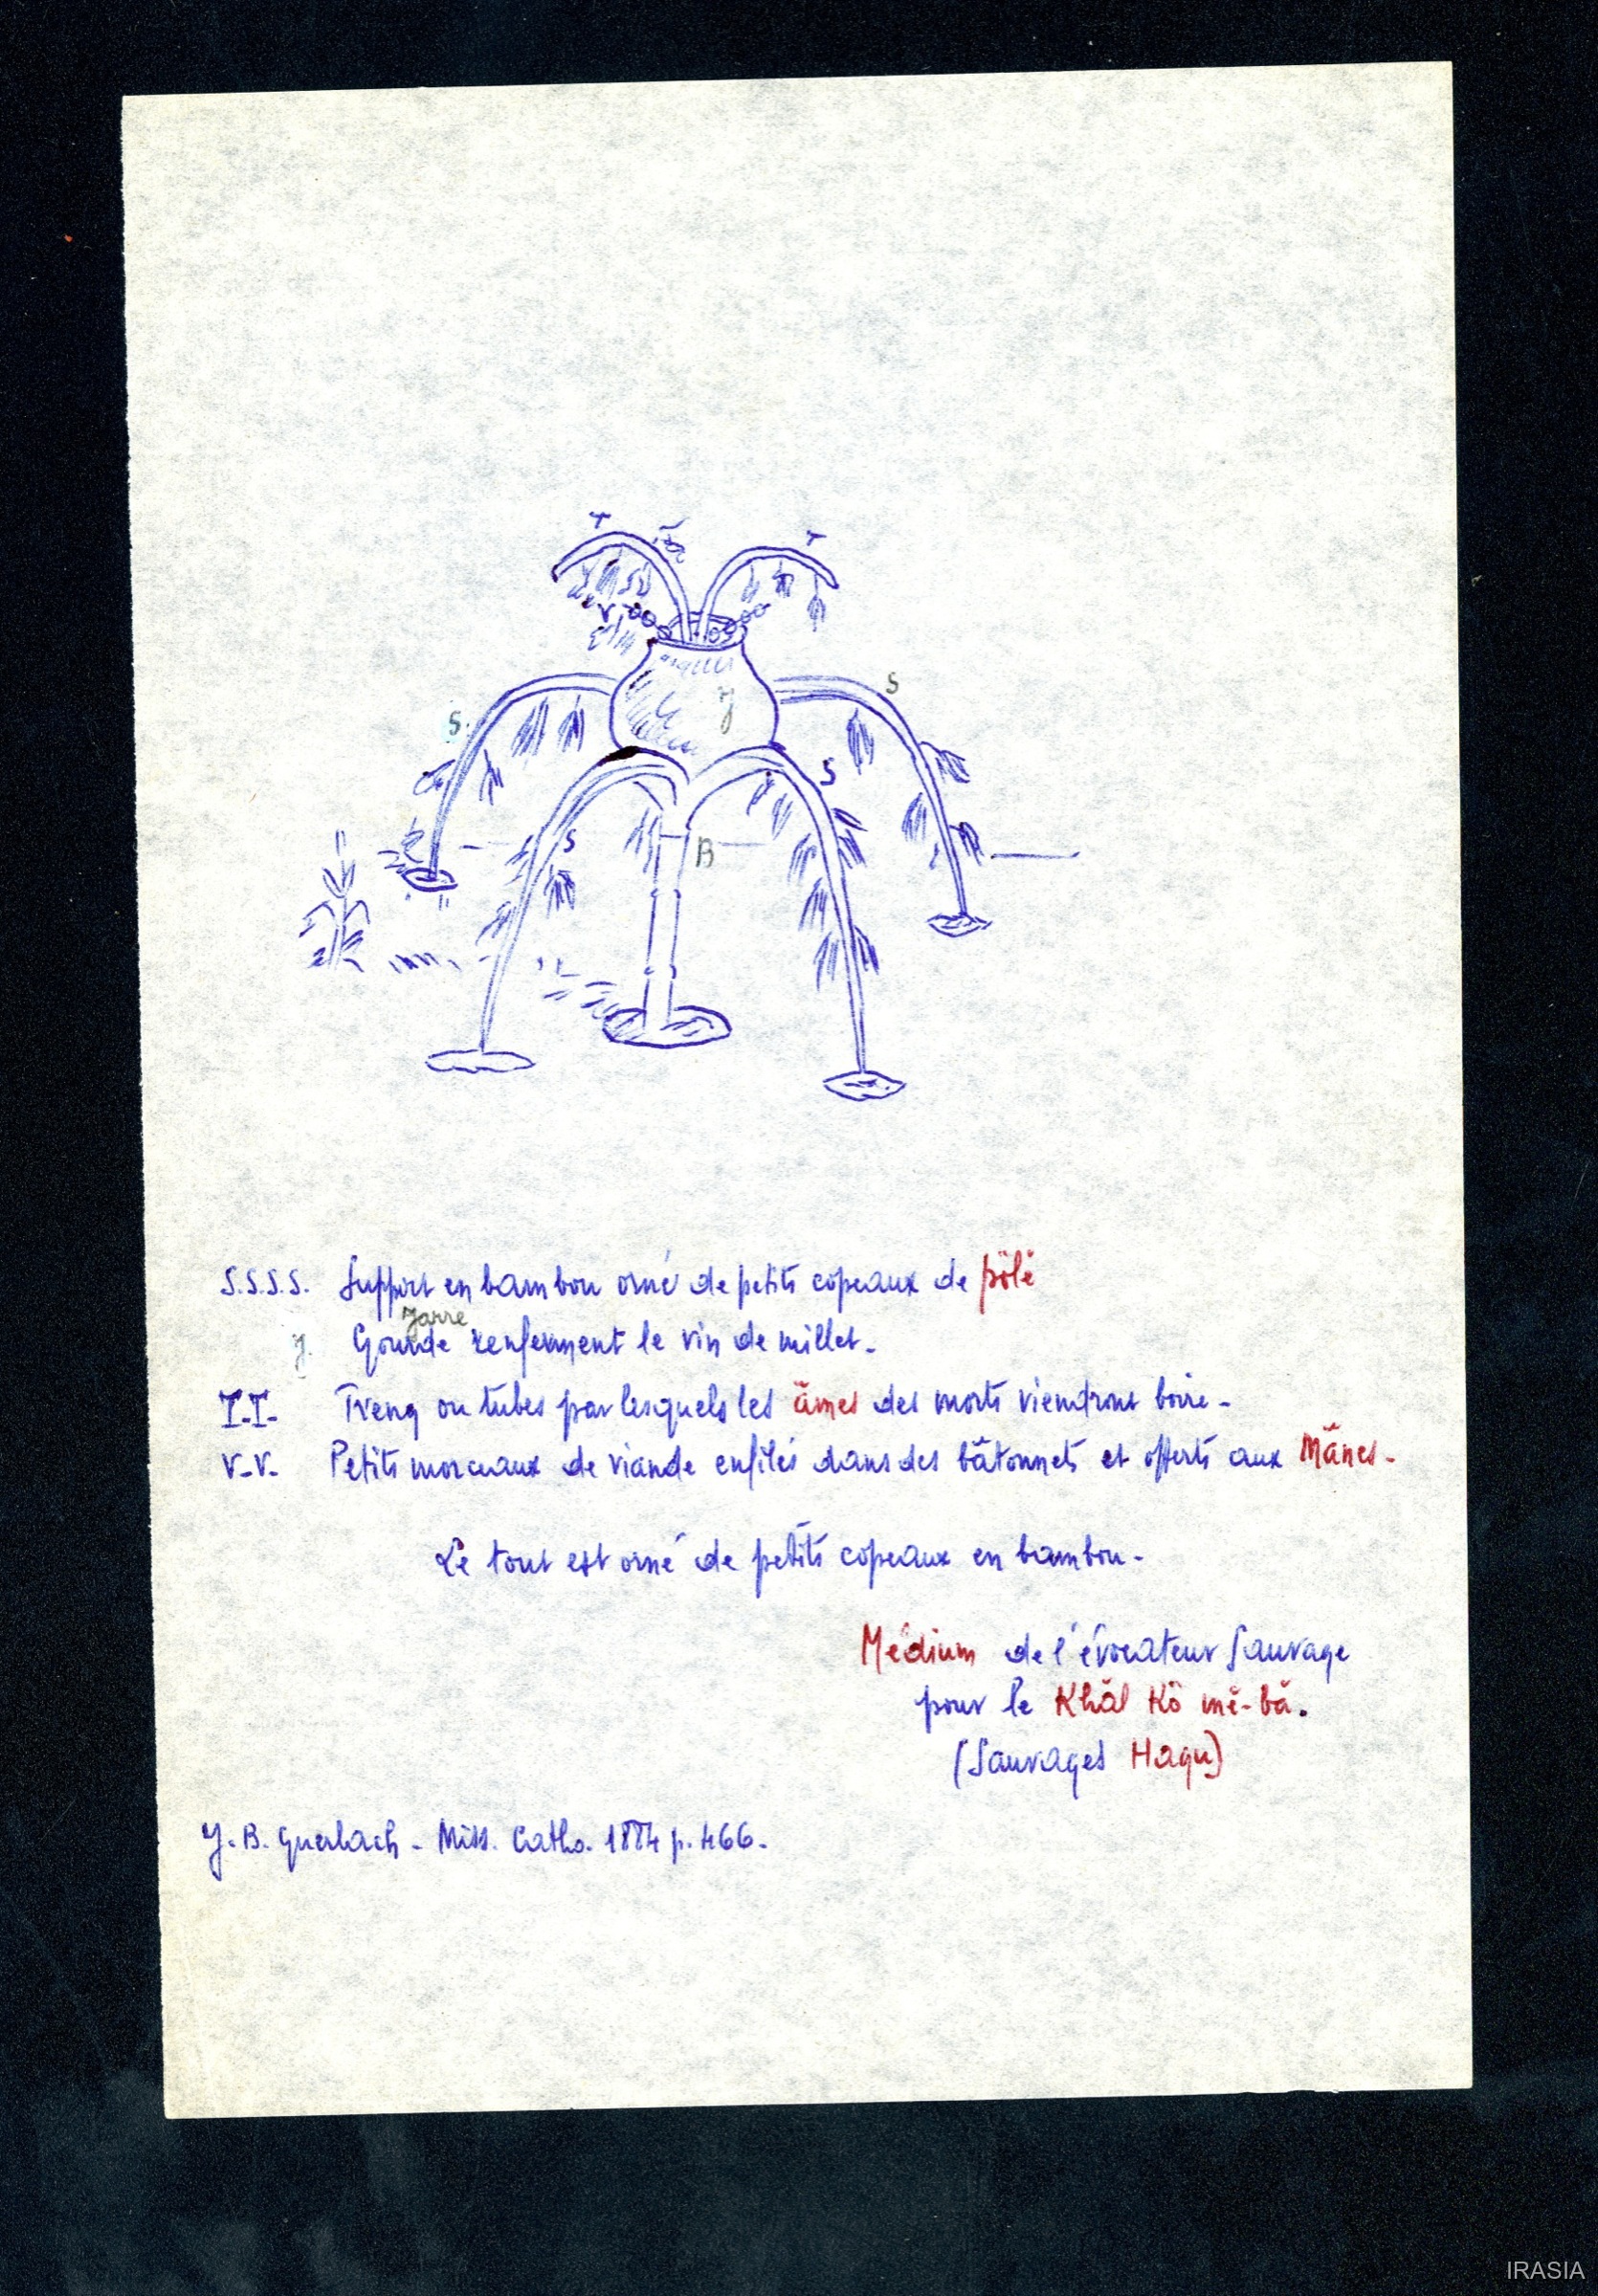 T
T
V
S
S.
J
S
S
B
S.S.S.S. Support en bambou orné de petits copeaux de pŏlĕ
Jarre
J. Gourde renferment le vin de millet.
T-T- Treng ou tubes par lesquels les âmes des morts viendront boire -
V-V- Petits morceaux de viande enfilés dans des bâtonnets et offerts aux Mânes -
Le tout est orné de petits copeaux en bambou -
Médium de l'évocateur Sauvage
pour le Khăl Kŏ mĕ-bă.
(Sauvages Hagu)
J.B. Guerlach - Miss. Catho. 1884 p. 466 -
IRASIA